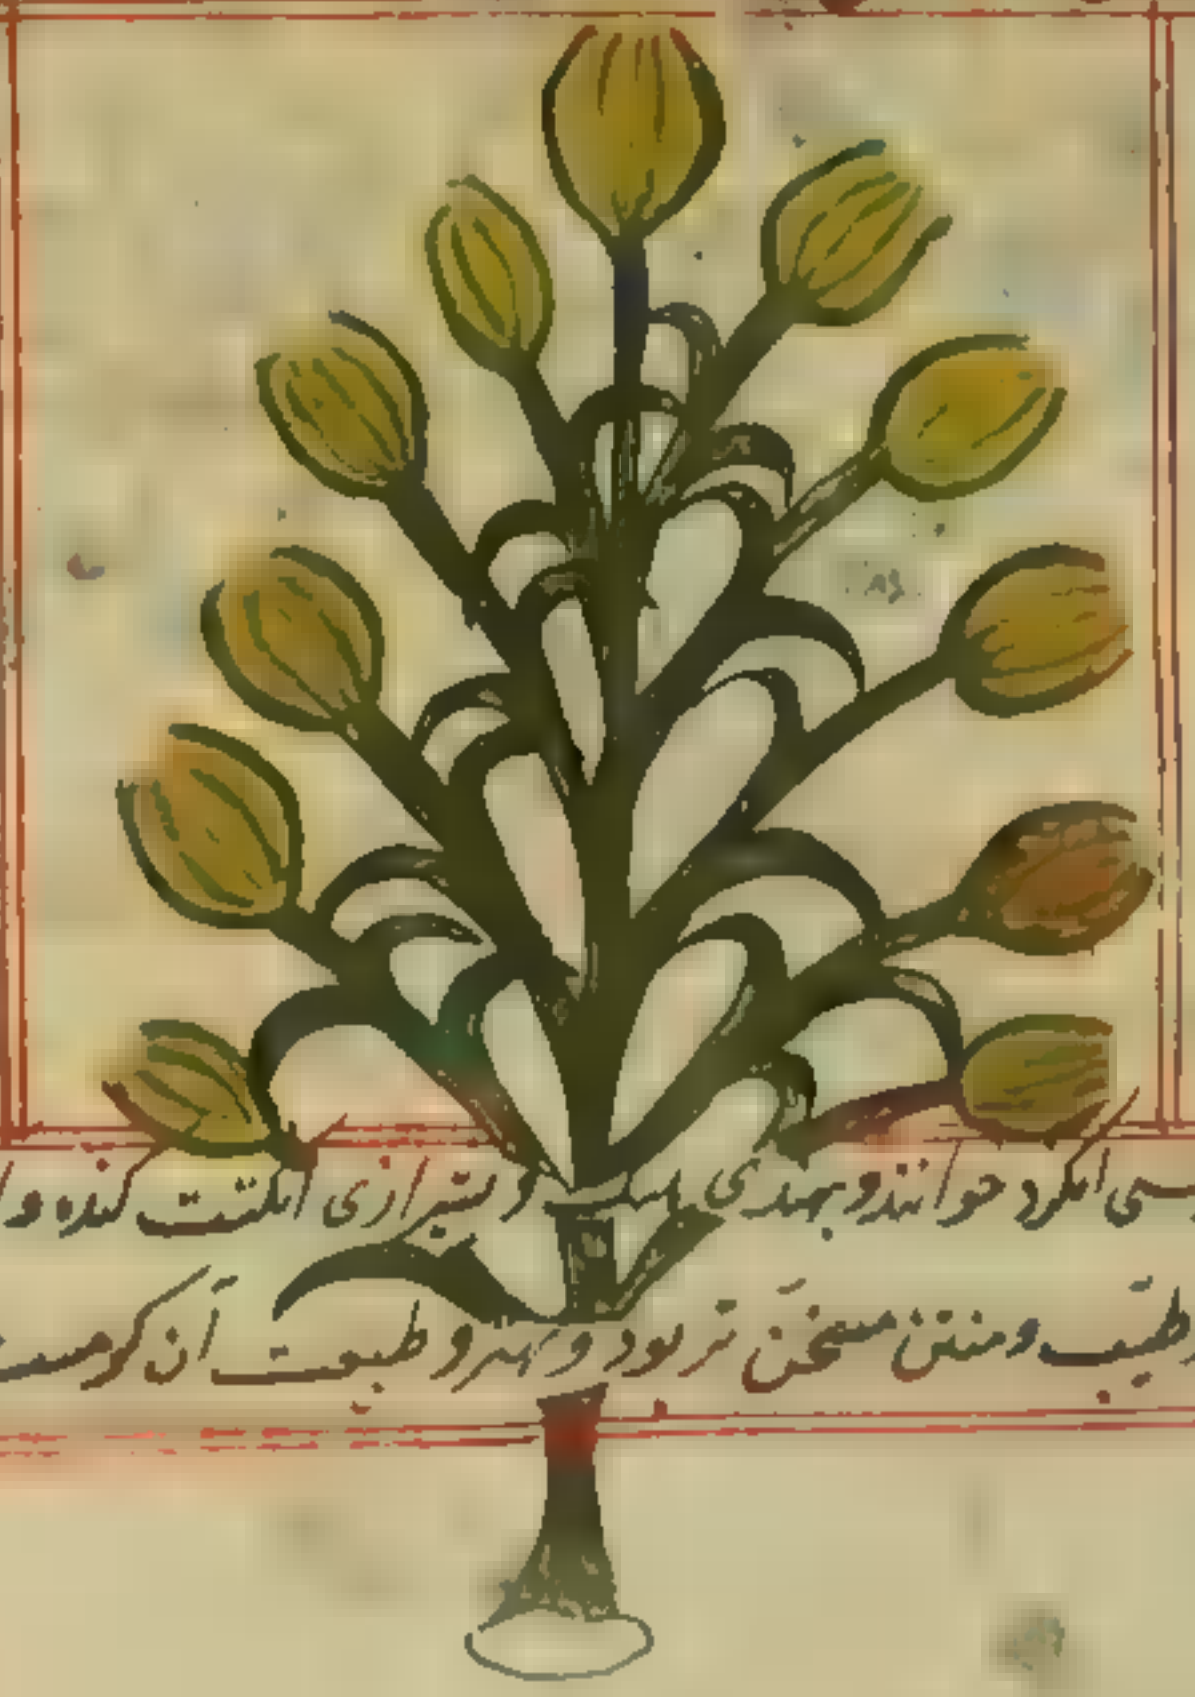 سی انکرد خوانند و بهندی و شیرازی انکشت کنده و ا
طیب و منتن مسخن تر بود و بهر و طبیعت آن کو مست